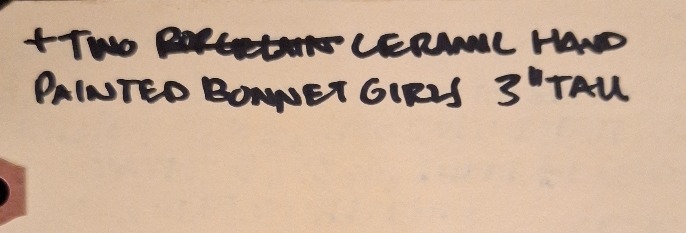 + TWO CERAMIC HAND
PAINTED BONNET GIRLS 3" TALL